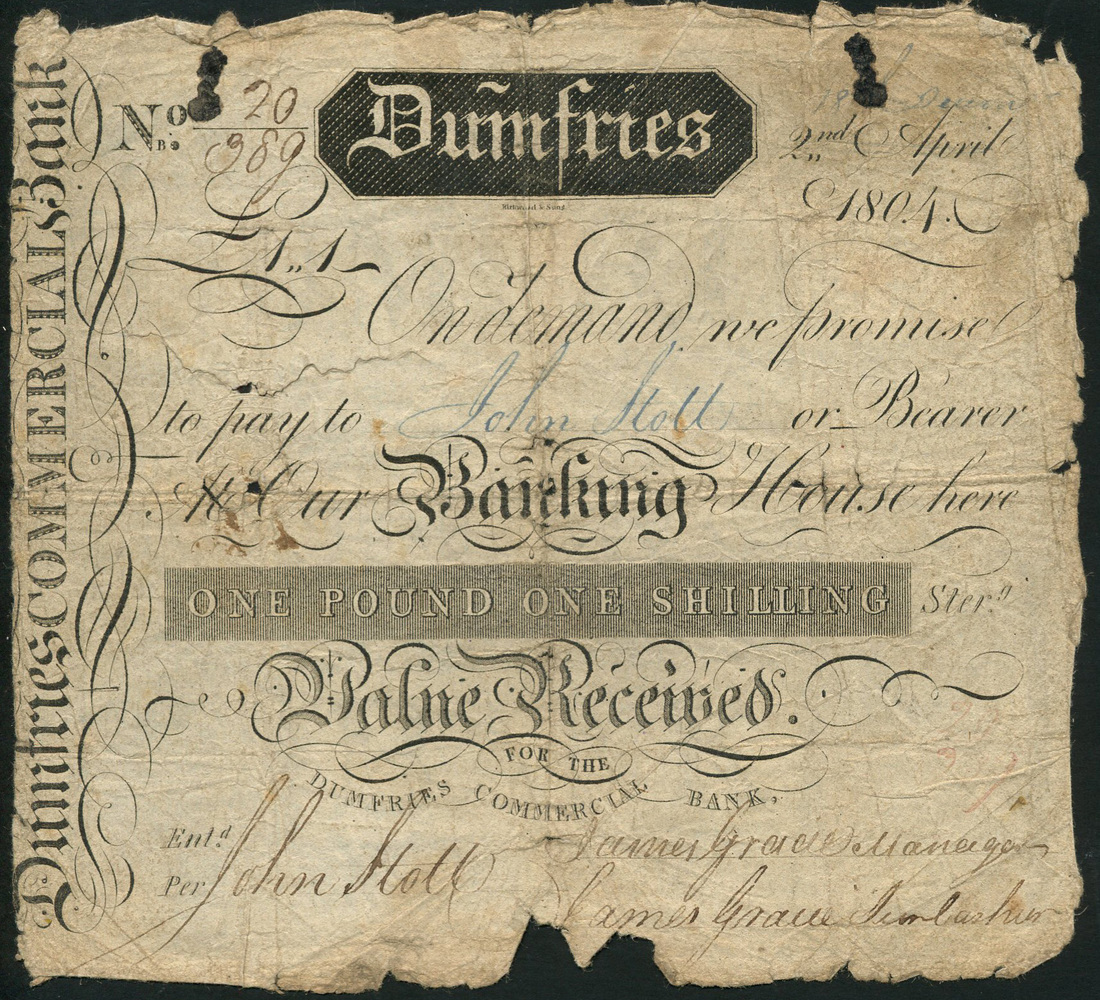 Dumfries COMMERCIAL Bank
No. B. 20/389
Dumfries
2nd April
1804.
£1,,1
On demand, we promise
to pay to John Stott or Bearer
At Our Banking House here
ONE POUND ONE SHILLING Ster.g
Value Received.
FOR THE
DUMFRIES COMMERCIAL BANK,
Ent.d
Per John Stott
James Gracie Manager
James Gracie Jun Cashier